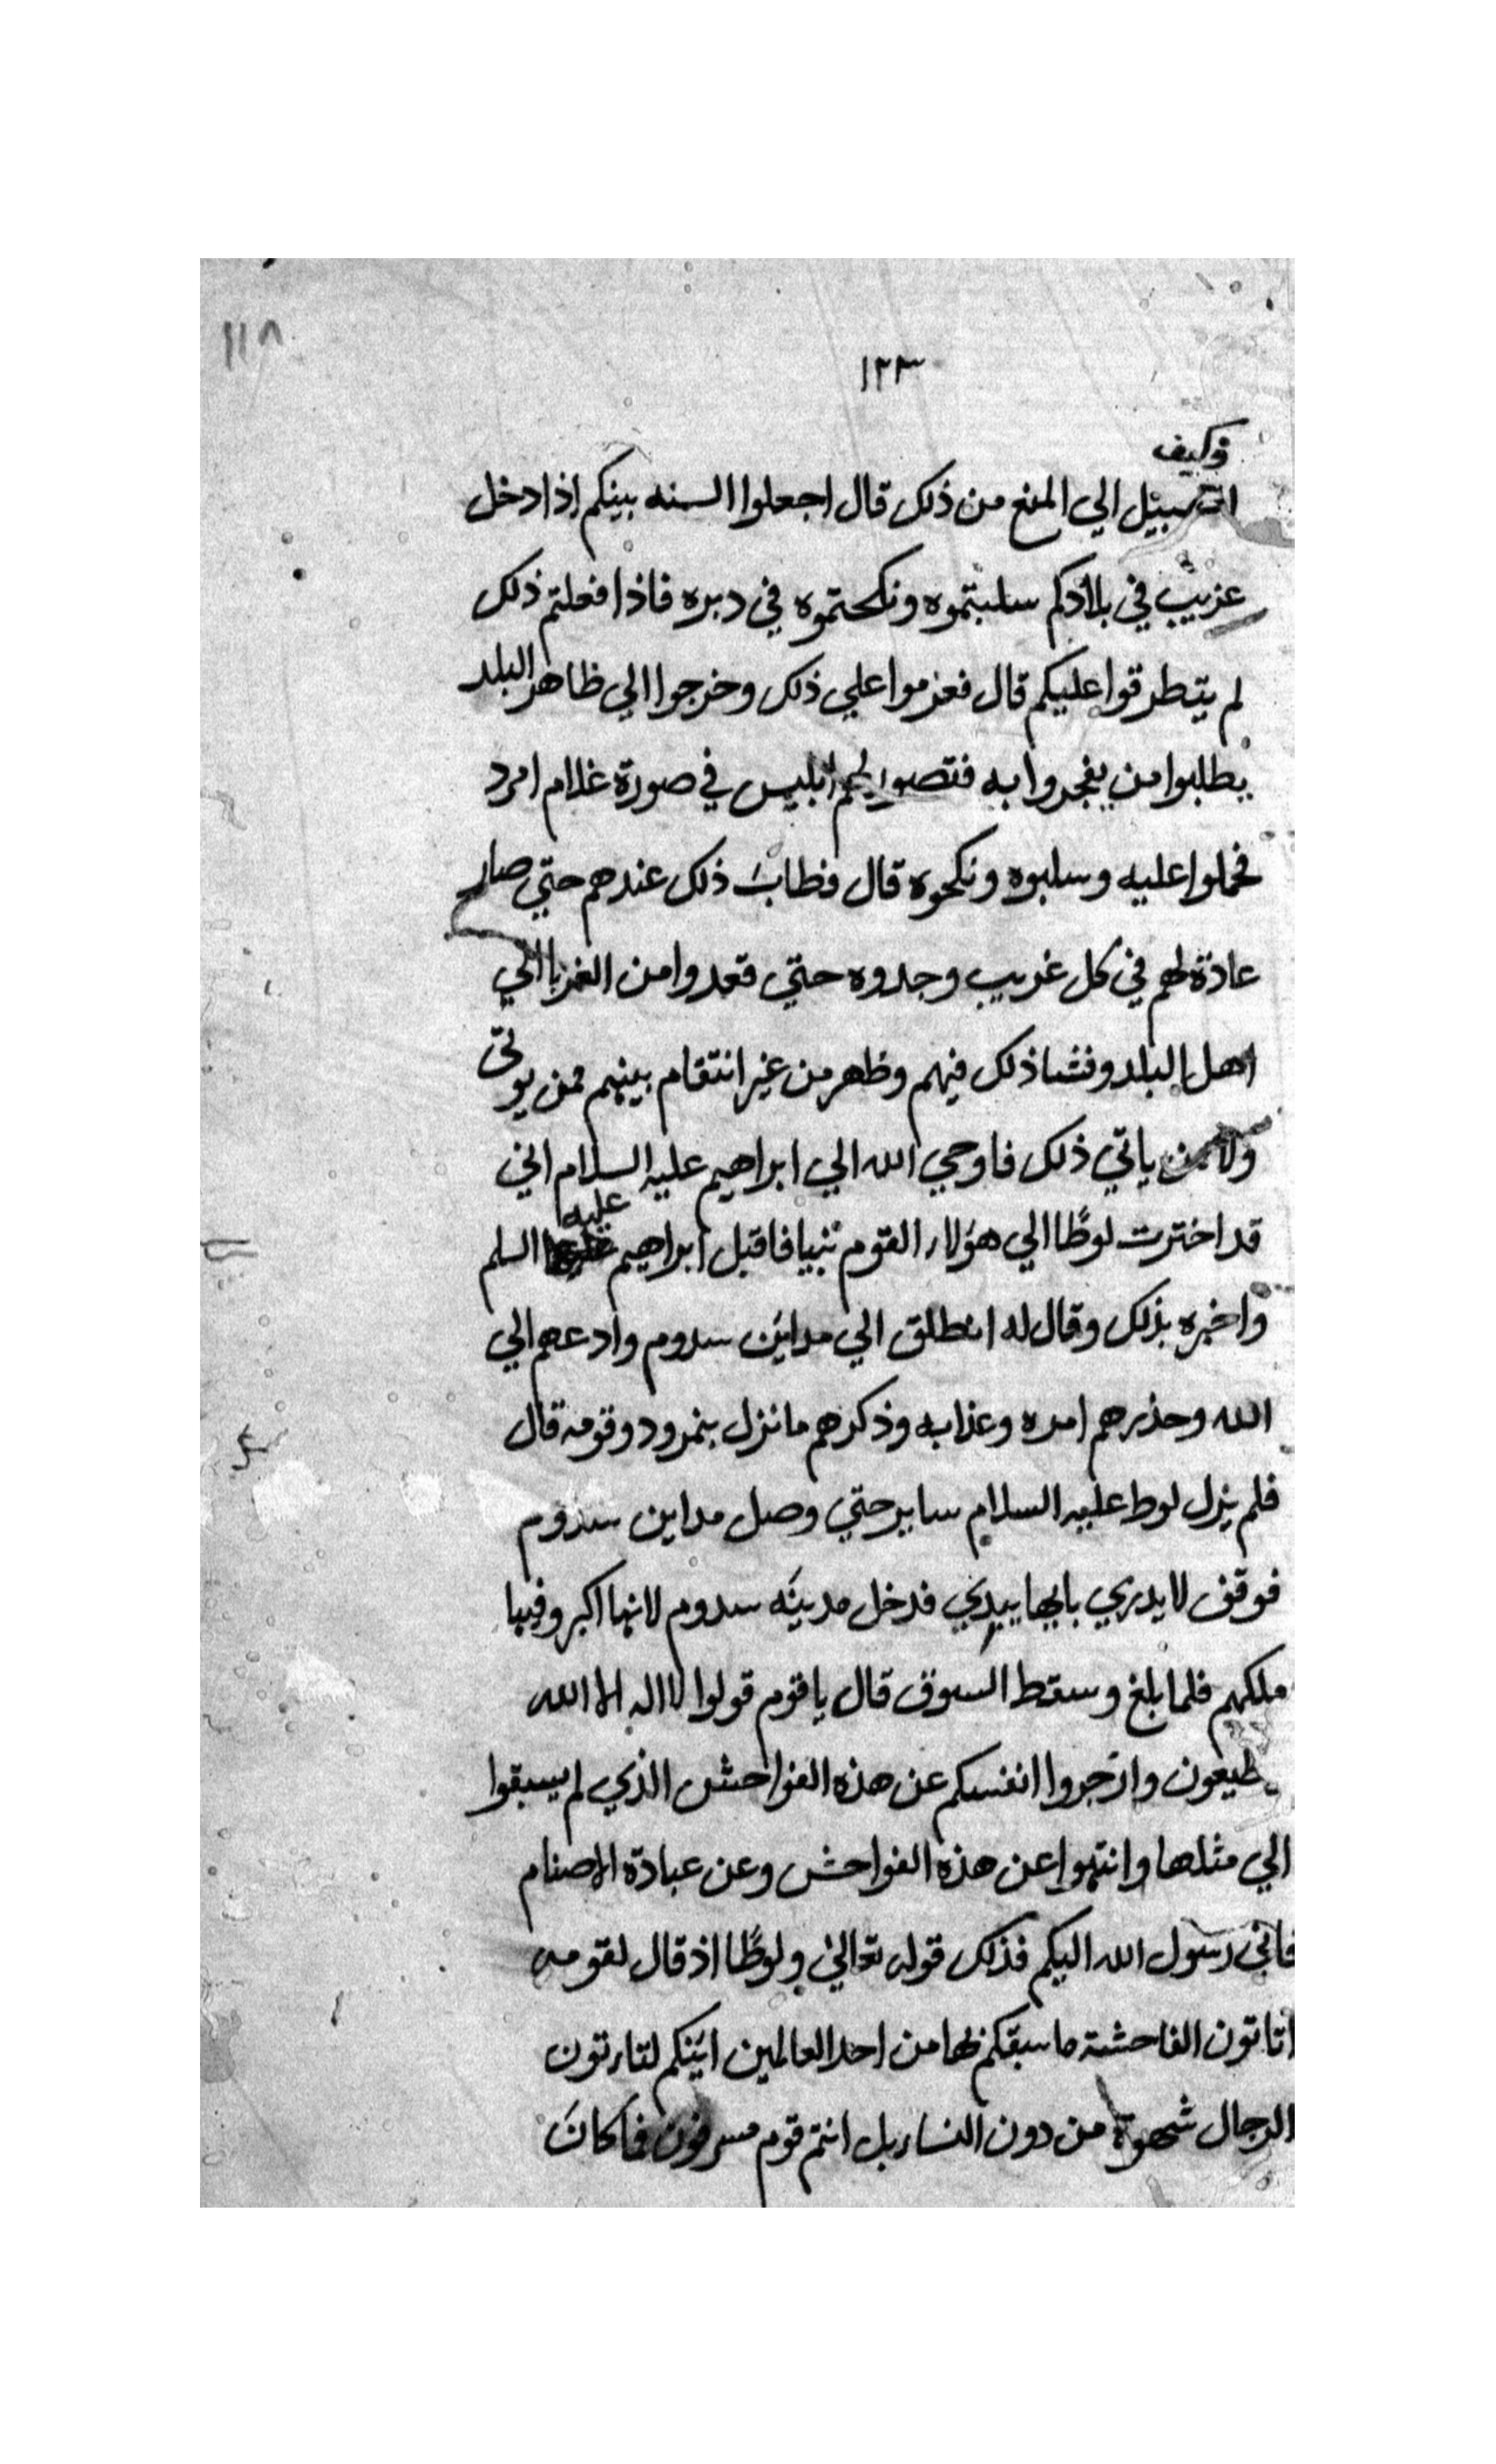 ١١٨
١٢٣
وكيف
السبيل الي المنع من ذلك قال اجعلوا السنه بينكم اذا دخل
غريب في بلادكم سلبتموه ونكحتموه في دبره فاذا فعلتم ذلك
لم يتطرقوا عليكم قال فعزموا علي ذلك وخرجوا الي ظاهر البلد
يطلبوا من يفجروا به فتصور لهم ابليس في صورة غلام امرد
فحملوا عليه وسلبوه ونكحوه قال فطاب ذلك عندهم حتي صار
عادة لهم في كل غريب وجدوه حتي تعدوا من الغربا الي
اهل البلد وفشا ذلك فيهم وظهر من غير انتقام بينهم ممن يوتي
ولا ممن ياتي ذلك فاوحي الله الي ابراهيم عليه السلام اني
قد اخترت لوطًا الي هولاء القوم نبيا فاقبل ابراهيم عليه السلم
واخبره بذلك وقال له انطلق الي مداين سدوم وادعهم الي
الله وحذرهم امره وعذابه وذكرهم ما نزل بنمرود وقومه قال
فلم يزل لوط عليه السلام ساير حتي وصل مداين سدوم
فوقف لا يدري بايها يبدي فدخل مدينه سدوم لانها اكبر وفيها
ملكهم فلما بلغ وسقط السوق قال يا قوم قولوا لا اله الا الله
طيعون وازجروا انفسكم عن هذه الفواحش الذي لم يسبقوا
الي مثلها وانتهوا عن هذه الفواحش وعن عبادة الاصنام
فاني رسول الله اليكم فذلك قوله تعالي ولوطًا اذ قال لقومه
اتاتون الفاحشة ما سبقكم بها من احد العالمين اينكم لتاتون
الرجال شهوة من دون النساء بل انتم قوم مسرفون فما كان